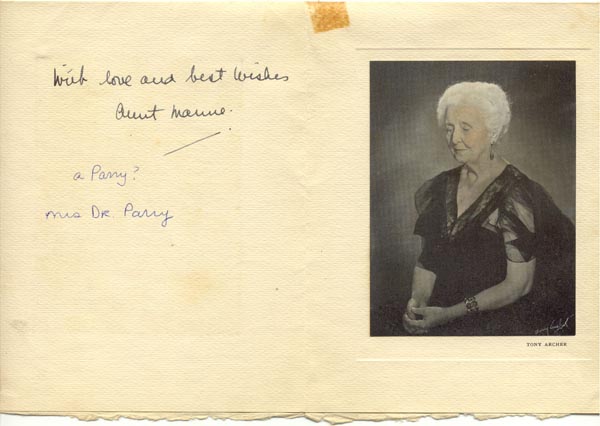 With love and best wishes
Aunt Mamie.
a Parry?
Mrs DR. Parry
TONY ARCHER